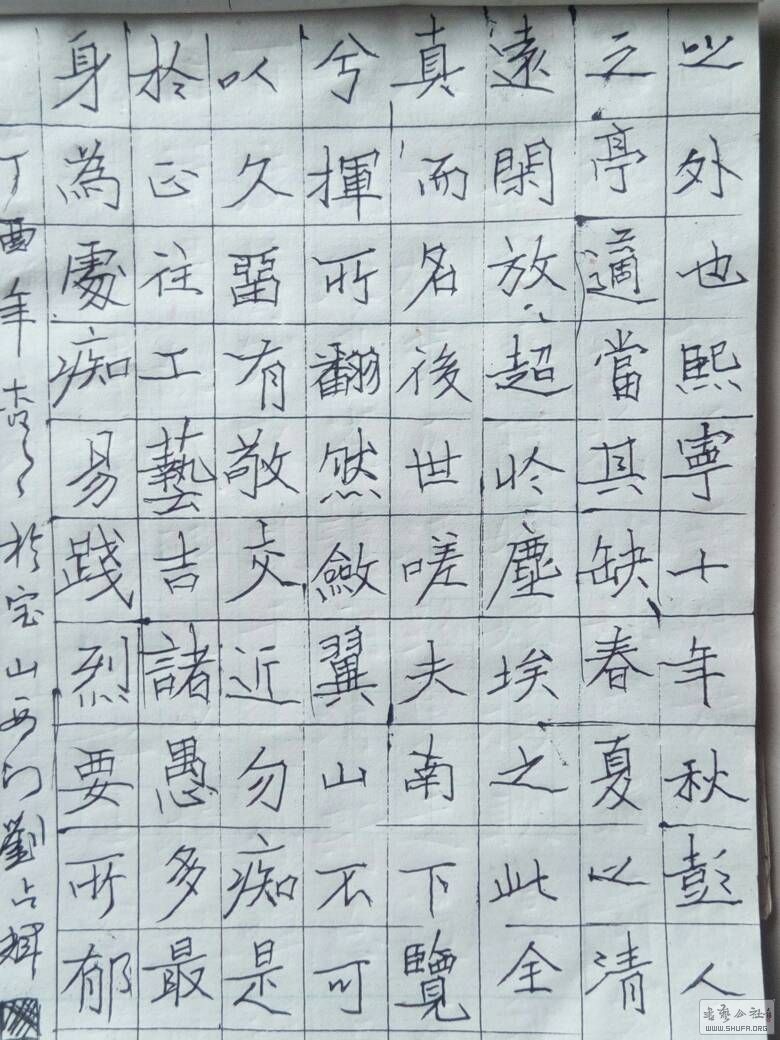 以外也熙寧十年秋彭人
之亭適當其缺春夏以清
遠閑放超岭塵埃之此全
真而名後世嗟夫南下覽
兮揮所翻然斂翼山不可
以久留有敬交近勿痴是
於正往工藝吉諸愚多最
身為處痴易踐烈要所郁
丁酉年於宝山劉占辉
WWW.SHUFA.ORG